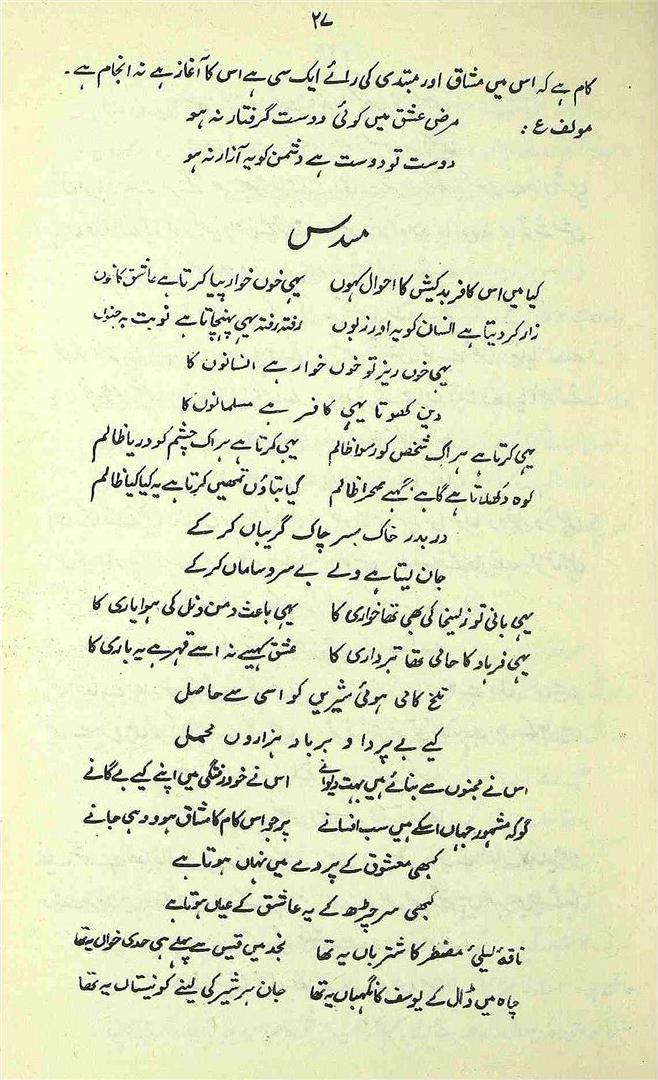 ۲۷
کام ہے کہ اس میں مشاق اور مبتدی کی رائے ایک سی ہے اس کا آغاز ہے نہ انجام ہے۔
مولف ع : مرض عشق میں کوئی دوست گرفتار نہ ہو
دوست تو دوست ہے دشمن کو یہ آزار نہ ہو
مسدس
کیا میں اس کافر بدکیش کا احوال کہوں یہی خوں خوار پیا کرتا ہے عاشق کا خوں
زار کر دیتا ہے انسان کو یہ اور زبوں رفتہ رفتہ یہی پہنچاتا ہے نوبت بہ جنوں
یہی خوں ریز تو خوں خوار ہے انسانوں کا
دین کھوتا یہی کافر ہے مسلمانوں کا
یہی کرتا ہے ہر اک شخص کو رسوا ظالم یہی کرتا ہے ہر اک چشم کو دریا ظالم
کوہ دکھلاتا ہے گاہے گہے صحرا ظالم کیا بتاؤں تمھیں کرتا ہے یہ کیا کیا ظالم
در بدر خاک بسر چاک گریباں کر کے
جان لیتا ہے ولے بے سر و ساماں کر کے
یہی بانی تو زلیخا کی بھی تھا خواری کا یہی باعث دمن و نل کی ہوا یاری کا
یہی فرہاد کا حامی تھا تبرداری کا عشق کہیے نہ اسے قہر ہے یہ باری کا
تلخ کامی ہوئی شیریں کو اسی سے حاصل
کیے بے پردا و برباد ہزاروں محمل
اس نے مجنوں سے بنائے ہیں بہت دیوانے اس نے خود رفتگی میں اپنے کیے بے گانے
گو کہ مشہور جہاں اسکے ہیں سب افسانے پر جو اس کام کا مشاق ہو وہی جانے
کبھی معشوق کے پردے میں نہاں ہوتا ہے
کبھی سر چڑھ کے یہ عاشق کے عیاں ہوتا ہے
ناقہ لیلیٰ مضطر کا شترباں یہ تھا نجد میں قیس سے پہلے ہی حدی خواں یہ تھا
چاہ میں ڈال کے یوسف کا نگہباں یہ تھا جان ہر شیر کی لینے کو نیستاں یہ تھا